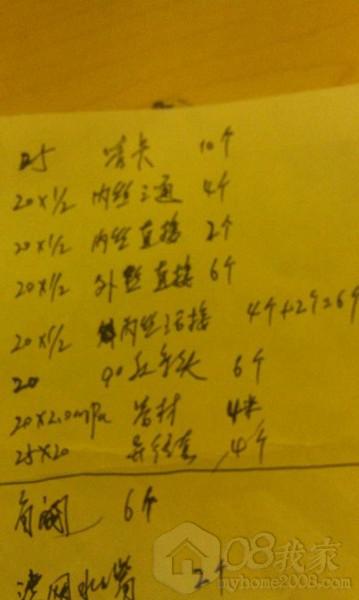 25 管卡 10个
20×1/2 内丝三通 4个
20×1/2 内丝直接 2个
20×1/2 外丝直接 6个
20×1/2 内丝活接 4个+2个=6个
20 90°弯头 6个
20×2.0mPa 管材 4米
25×20 异径套 4个
角阀 6个
水嘴 2个
08我家
myhome2008.com